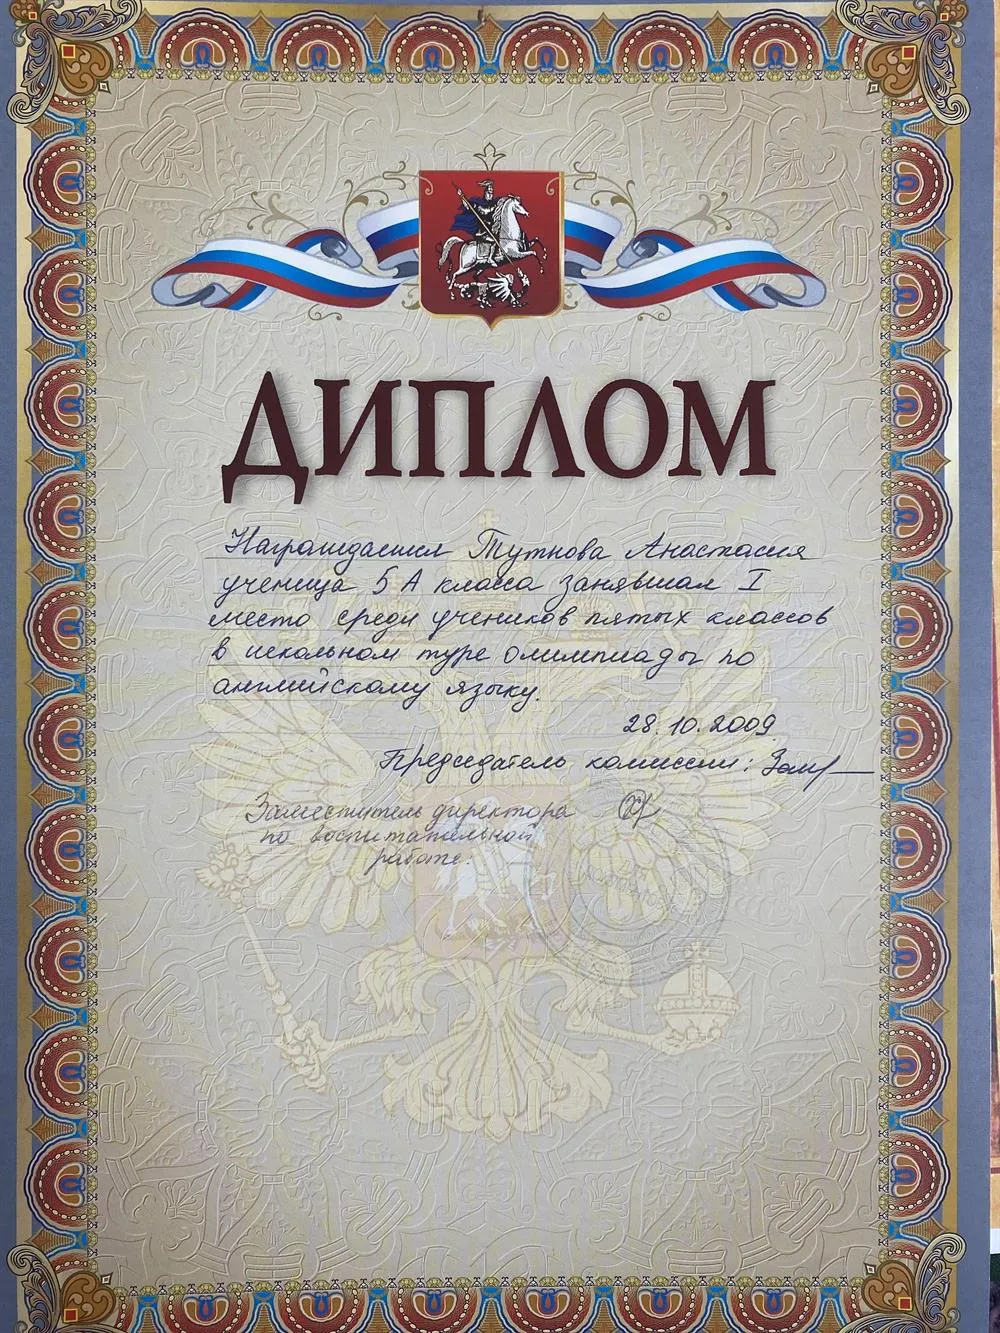 ДИПЛОМ
Награждается Тутнова Анастасия
ученица 5 А класса занявшая I
место среди учеников пятых классов
в школьном туре олимпиады по
английскому языку.
28.10.2009
Председатель комиссии:
Заместитель директора
по воспитательной
работе: